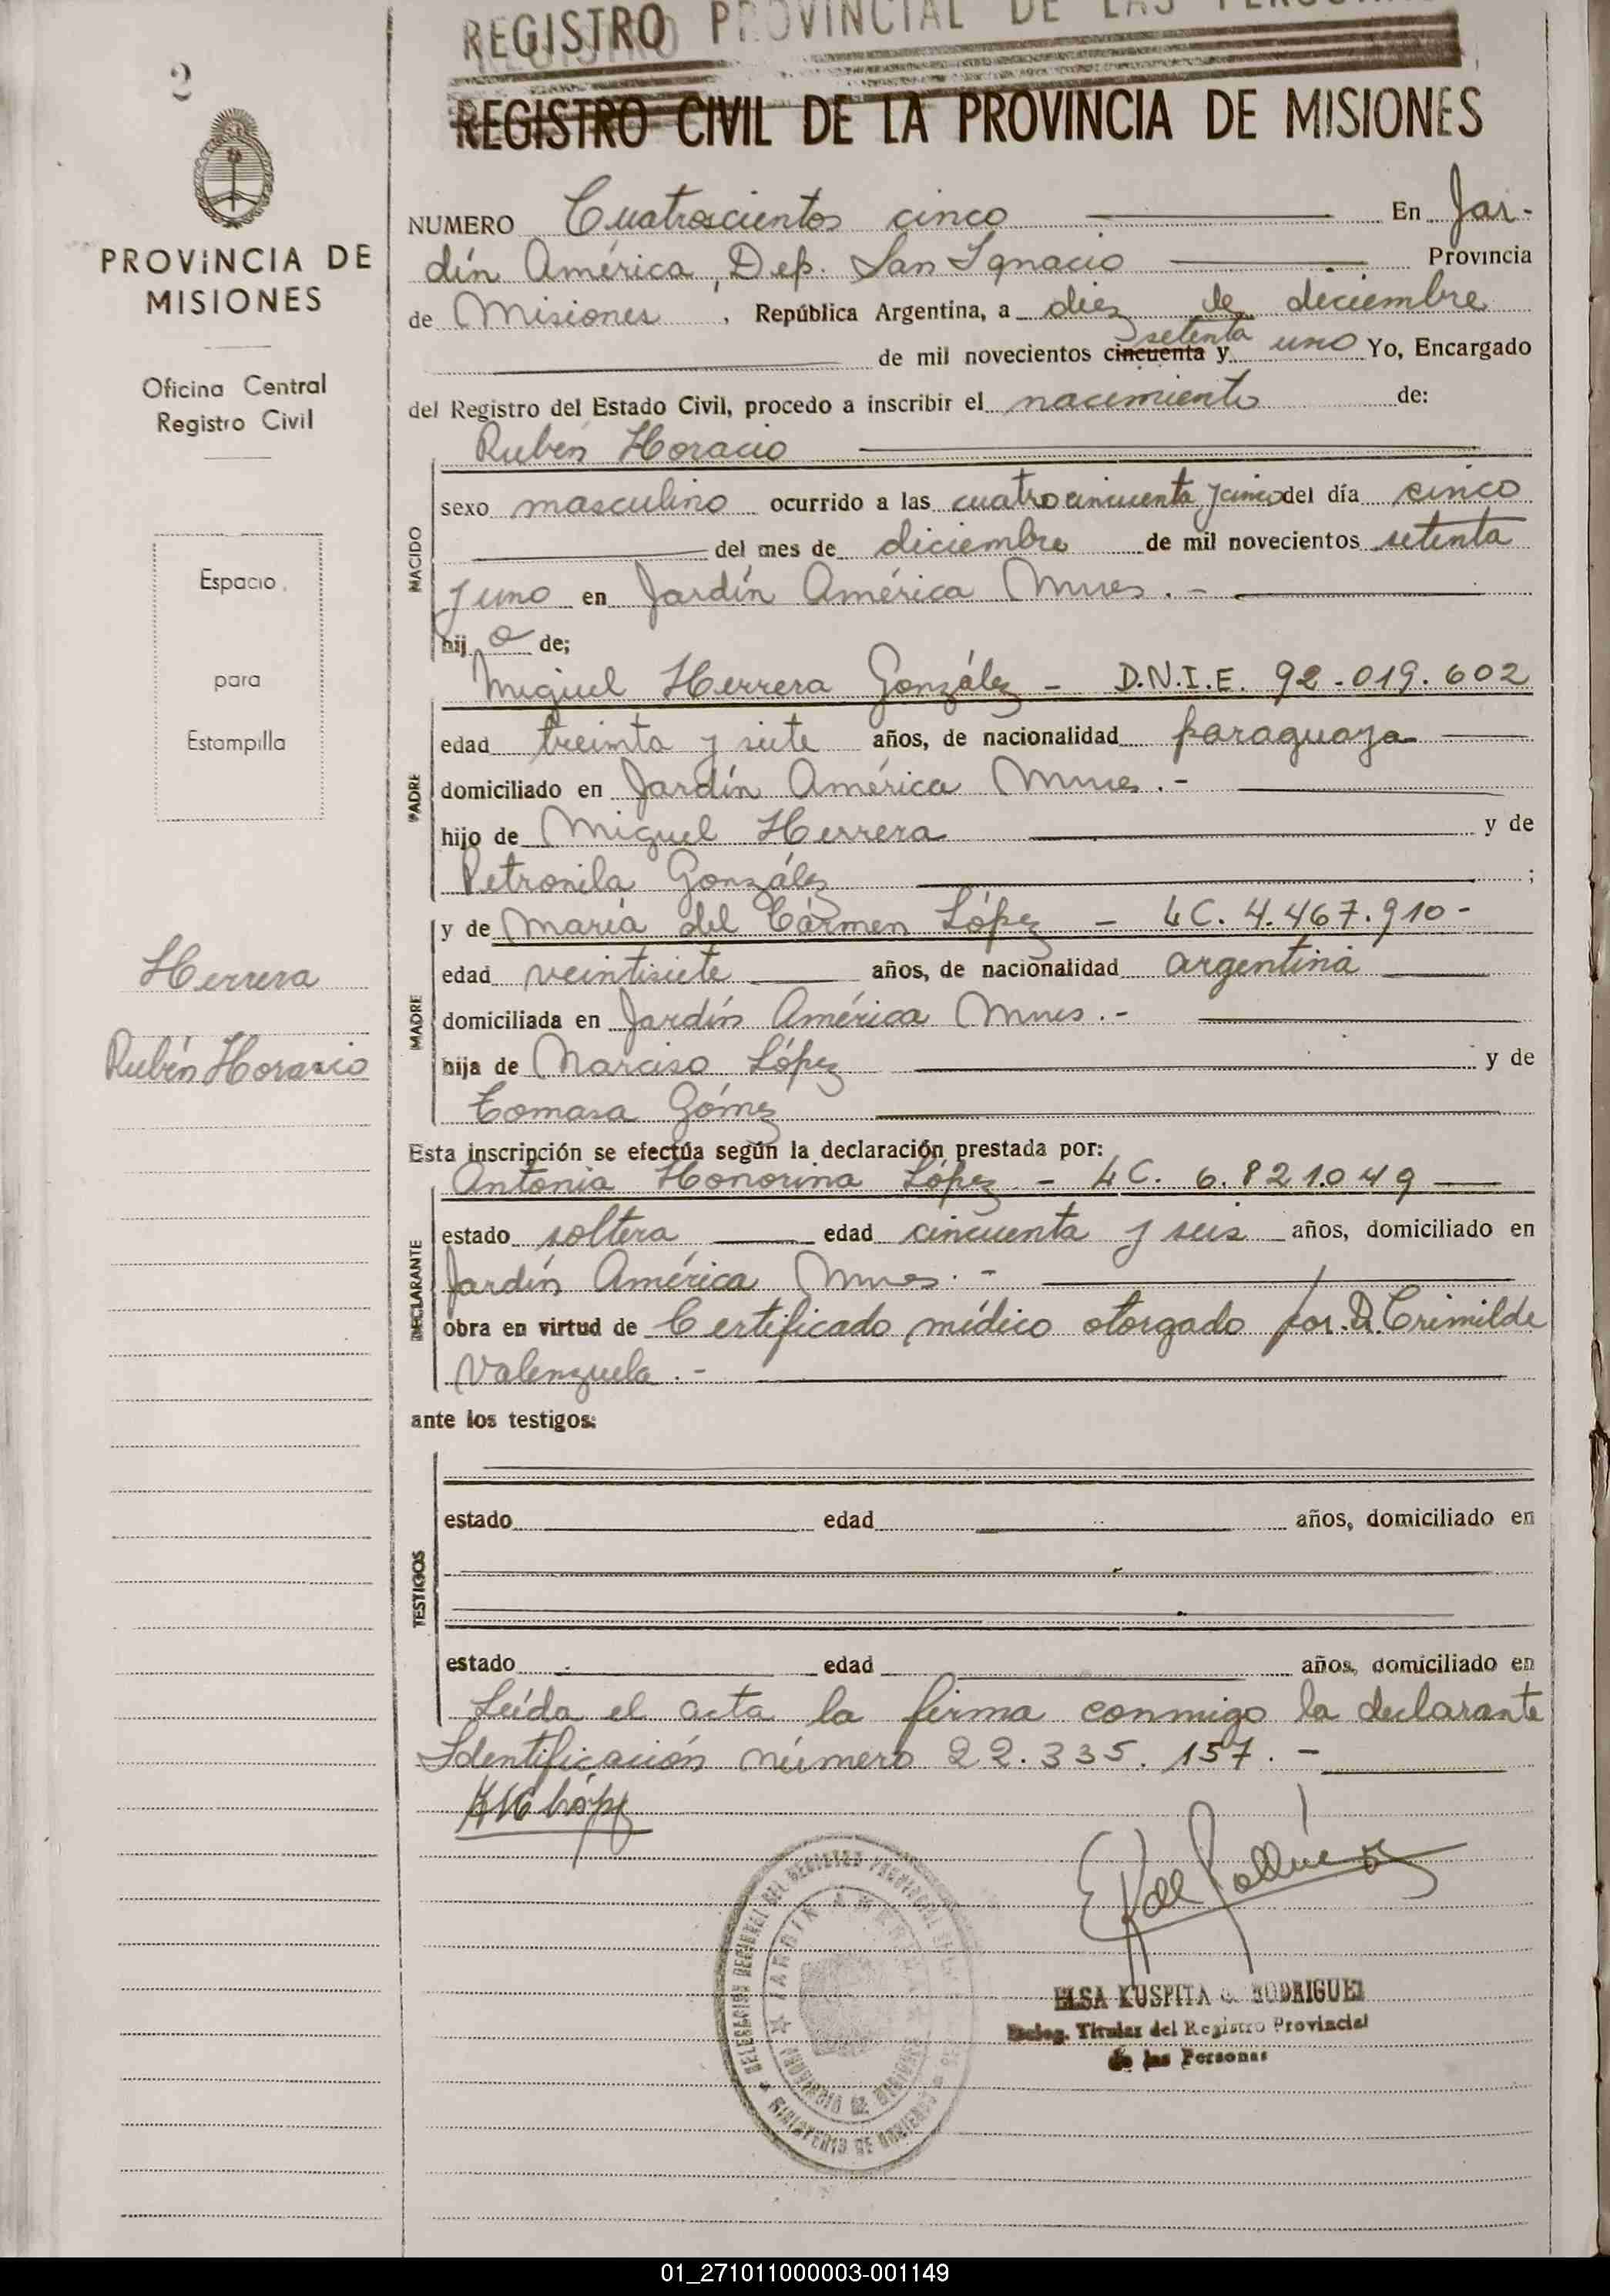 REGISTRO PROVINCIAL DE LAS
REGISTRO CIVIL DE LA PROVINCIA DE MISIONES
2
PROVINCIA DE
MISIONES
Oficina Central
Registro Civil
Espacio
para
Estampilla
Herrera
Rubén Horacio
NUMERO Cuatroscientos cinco En Jar-
dín América, Dep. San Ignacio Provincia
de Misiones, República Argentina, a diez de diciembre
setenta
de mil novecientos cincuenta y uno Yo, Encargado
del Registro del Estado Civil, procedo a inscribir el nacimiento de:
Rubén Horacio
NACIDO
sexo masculino ocurrido a las cuatro cincuenta y cinco del día cinco
del mes de diciembre de mil novecientos setenta
y uno en Jardín América Mnes. -
hij o de;
Miguel Herrera González - D.N.I.E. 92.019.602
PADRE
edad treinta y siete años, de nacionalidad paraguaya
domiciliado en Jardín América Mnes. -
hijo de Miguel Herrera y de
Petronila González ;
y de María del Cármen López - LC. 4.467.910-
MADRE
edad veintisiete años, de nacionalidad argentina
domiciliada en Jardín América Mnes. -
hija de Narciso López y de
Tomasa Gómez
Esta inscripción se efectúa según la declaración prestada por:
Antonia Honorina López - LC. 6.821.049
DECLARANTE
estado soltera edad cincuenta y seis años, domiciliado en
Jardín América Mnes. -
obra en virtud de Certificado médico otorgado por Dr. Crimilde
Valenzuela. -
ante los testigos:
TESTIGOS
estado edad años, domiciliado en
estado edad años, domiciliado en
Leída el acta la firma conmigo la declarante
Identificación número 22.335.157. -
López
DELEGACION REGIONAL DEL REGISTRO PROVINCIAL DE LAS
JARDIN AMERICA
PROVINCIA DE MISIONES
MINISTERIO DE GOBIERNO
ELSA KUSPITA de RODRIGUEZ
Deleg. Titular del Registro Provincial
de las Personas
01_271011000003-001149